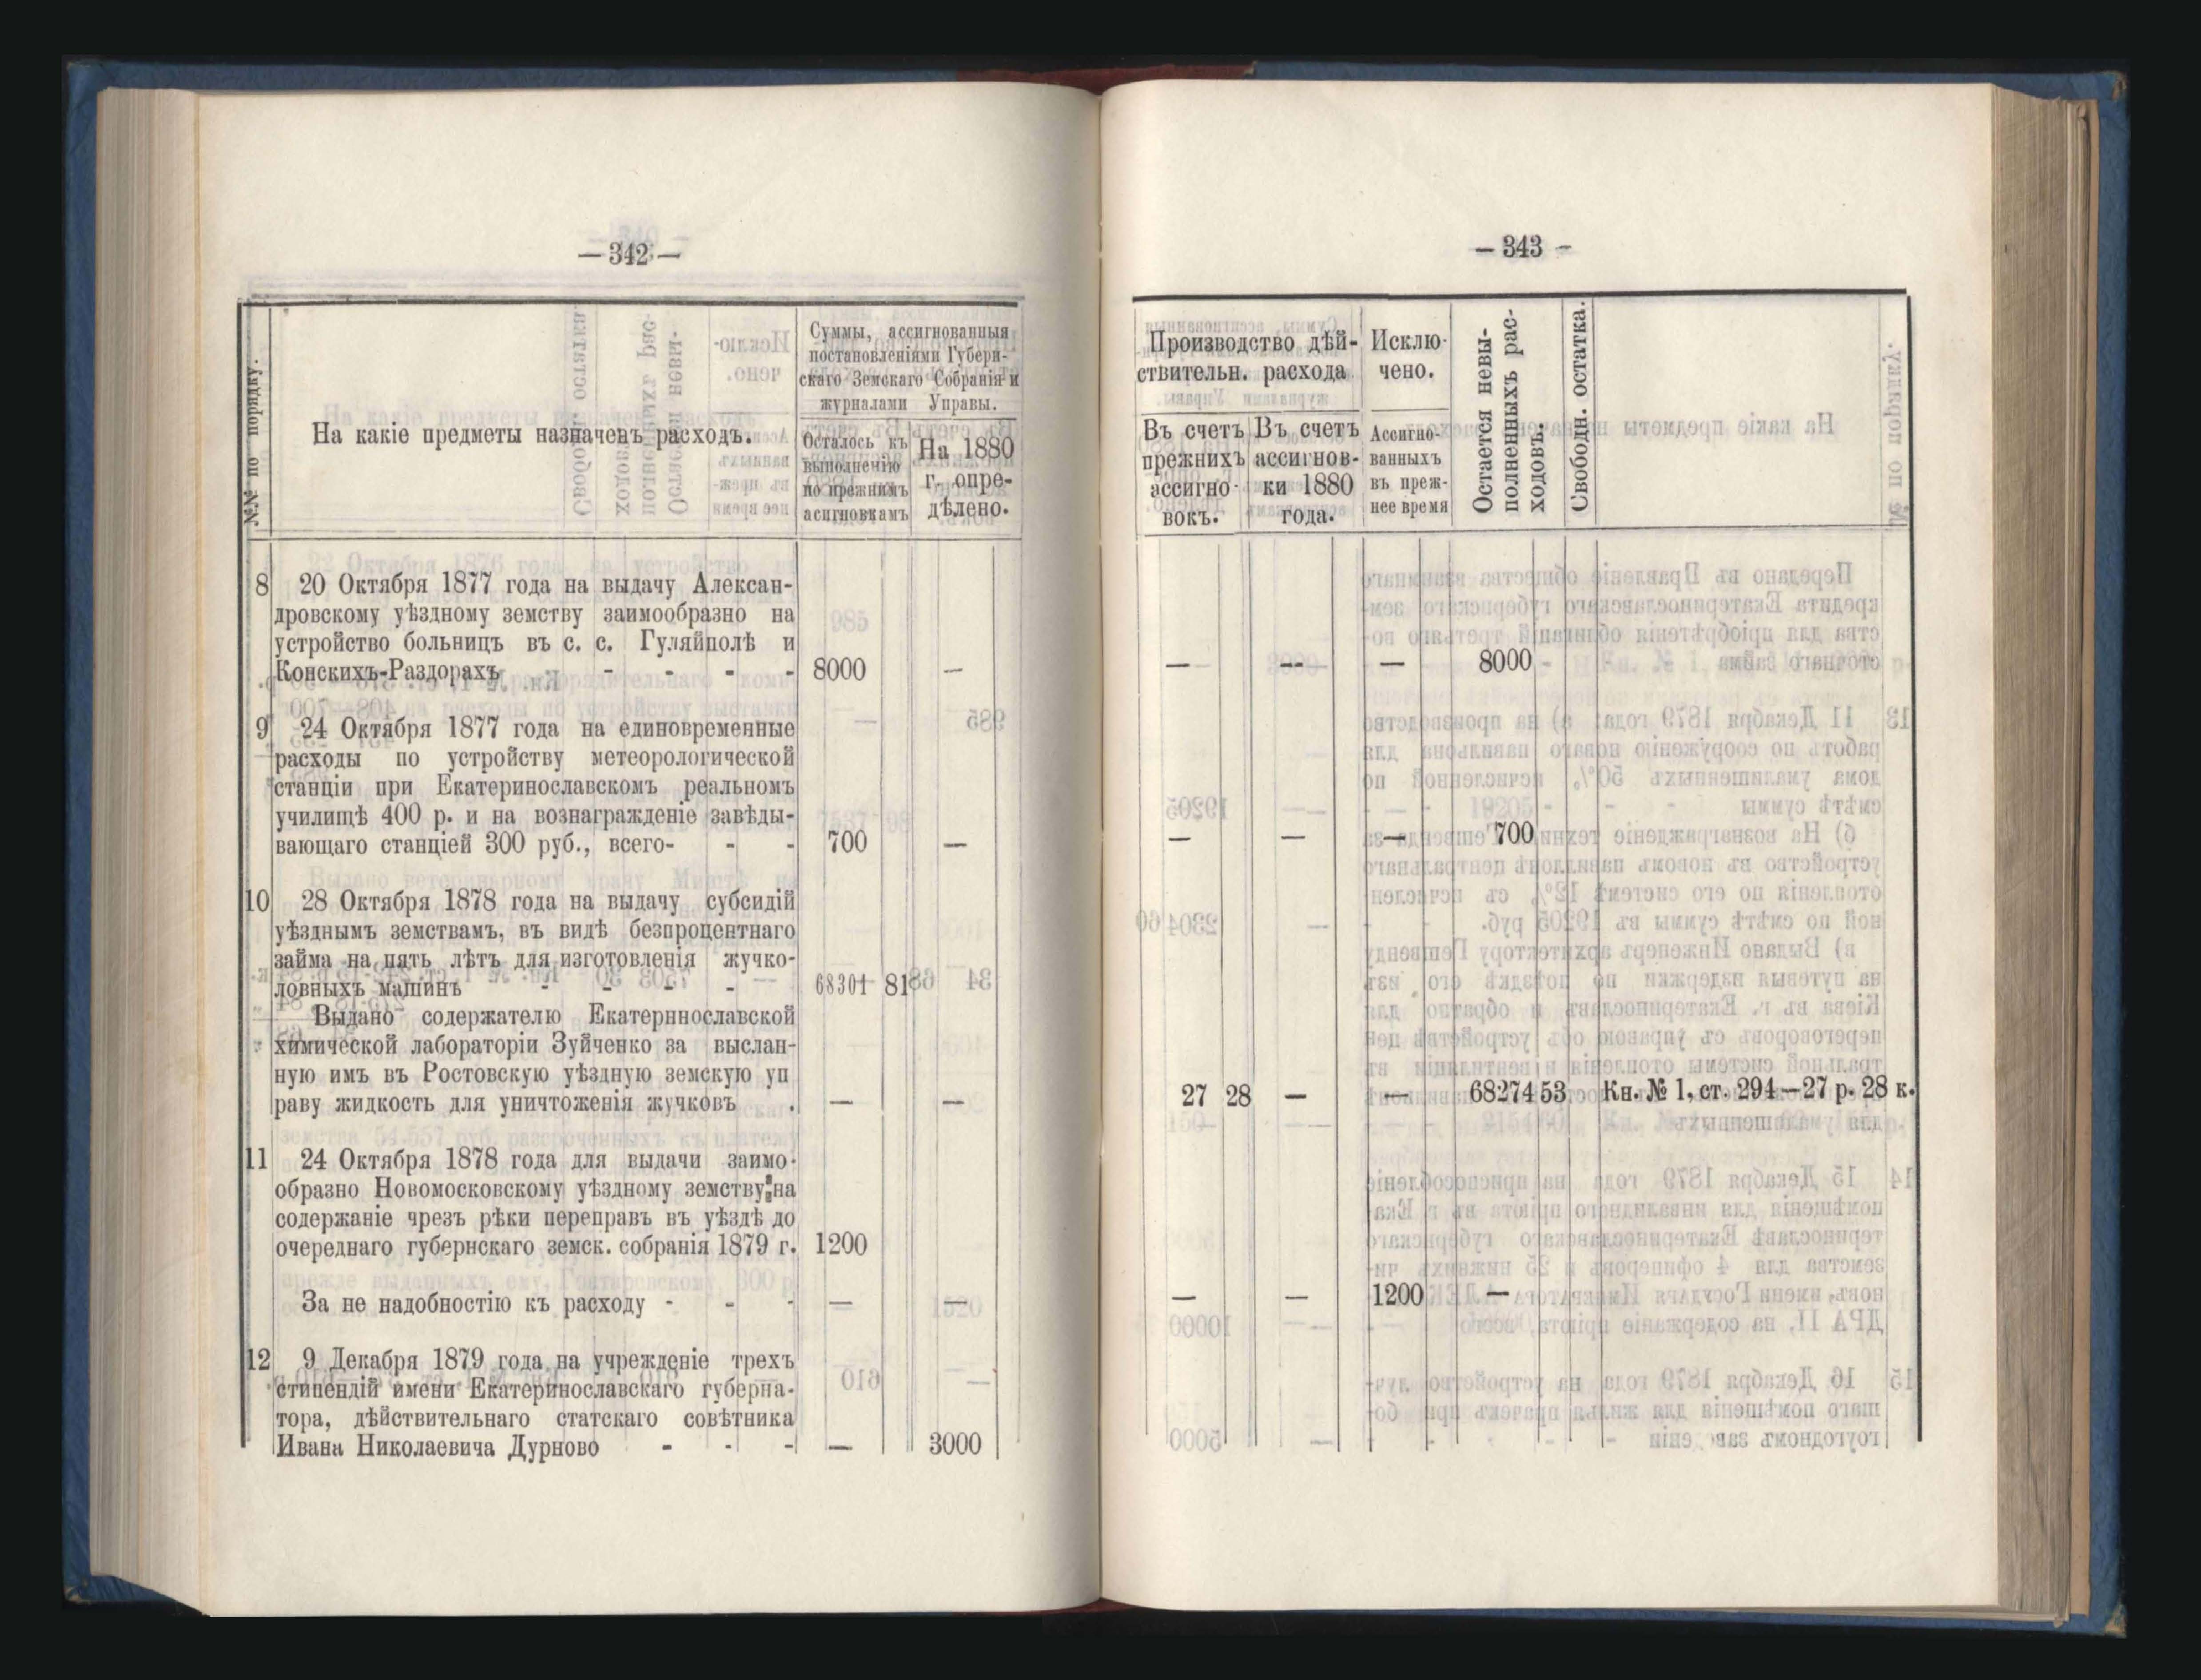 — 342 —
№№ по порядку.
На какіе предметы назначенъ расходъ.
Суммы, ассигнованныя
постановленіями Губерн-
скаго Земскаго Собранія и
журналами Управы.
Осталось къ
выполненію
по прежнимъ
асигновкамъ
На 1880
г. опре-
дѣлено.
8 20 Октября 1877 года на выдачу Алексан-
дровскому уѣздному земству заимообразно на
устройство больницъ въ с. с. Гуляйполѣ и
Конскихъ-Раздорахъ - - - - 8000 —
9 24 Октября 1877 года на единовременные
расходы по устройству метеорологической
станціи при Екатеринославскомъ реальномъ
училищѣ 400 р. и на вознагражденіе завѣды-
вающаго станціей 300 руб., всего- - - 700 —
10 28 Октября 1878 года на выдачу субсидій
уѣзднымъ земствамъ, въ видѣ безпроцентнаго
займа на пять лѣтъ для изготовленія жучко-
ловныхъ машинъ - - - - 68301 81
Выдано содержателю Екатеринославской
химической лабораторіи Зуйченко за выслан-
ную имъ въ Ростовскую уѣздную земскую уп
раву жидкость для уничтоженія жучковъ . — —
11 24 Октября 1878 года для выдачи заимо-
образно Новомосковскому уѣздному земству на
содержаніе чрезъ рѣки переправъ въ уѣздѣ до
очереднаго губернскаго земск. собранія 1879 г. 1200
За не надобностію къ расходу - - - — —
12 9 Декабря 1879 года на учрежденіе трехъ
стипендій имени Екатеринославскаго губерна-
тора, дѣйствительнаго статскаго совѣтника
Ивана Николаевича Дурново - - - — 3000
— 343 —
Производство дѣй-
ствительн. расхода
Въ счетъ
прежнихъ
ассигно-
вокъ.
Въ счетъ
ассигнов-
ки 1880
года.
Исклю-
чено.
Ассигно-
ванныхъ
въ преж-
нее время
Остается невы-
полненныхъ рас-
ходовъ.
Свободн. остатка.
— — — 8000
— — — 700
27 28 — — 68274 53 Кн. № 1, ст. 294—27 р. 28 к.
— — 1200 —